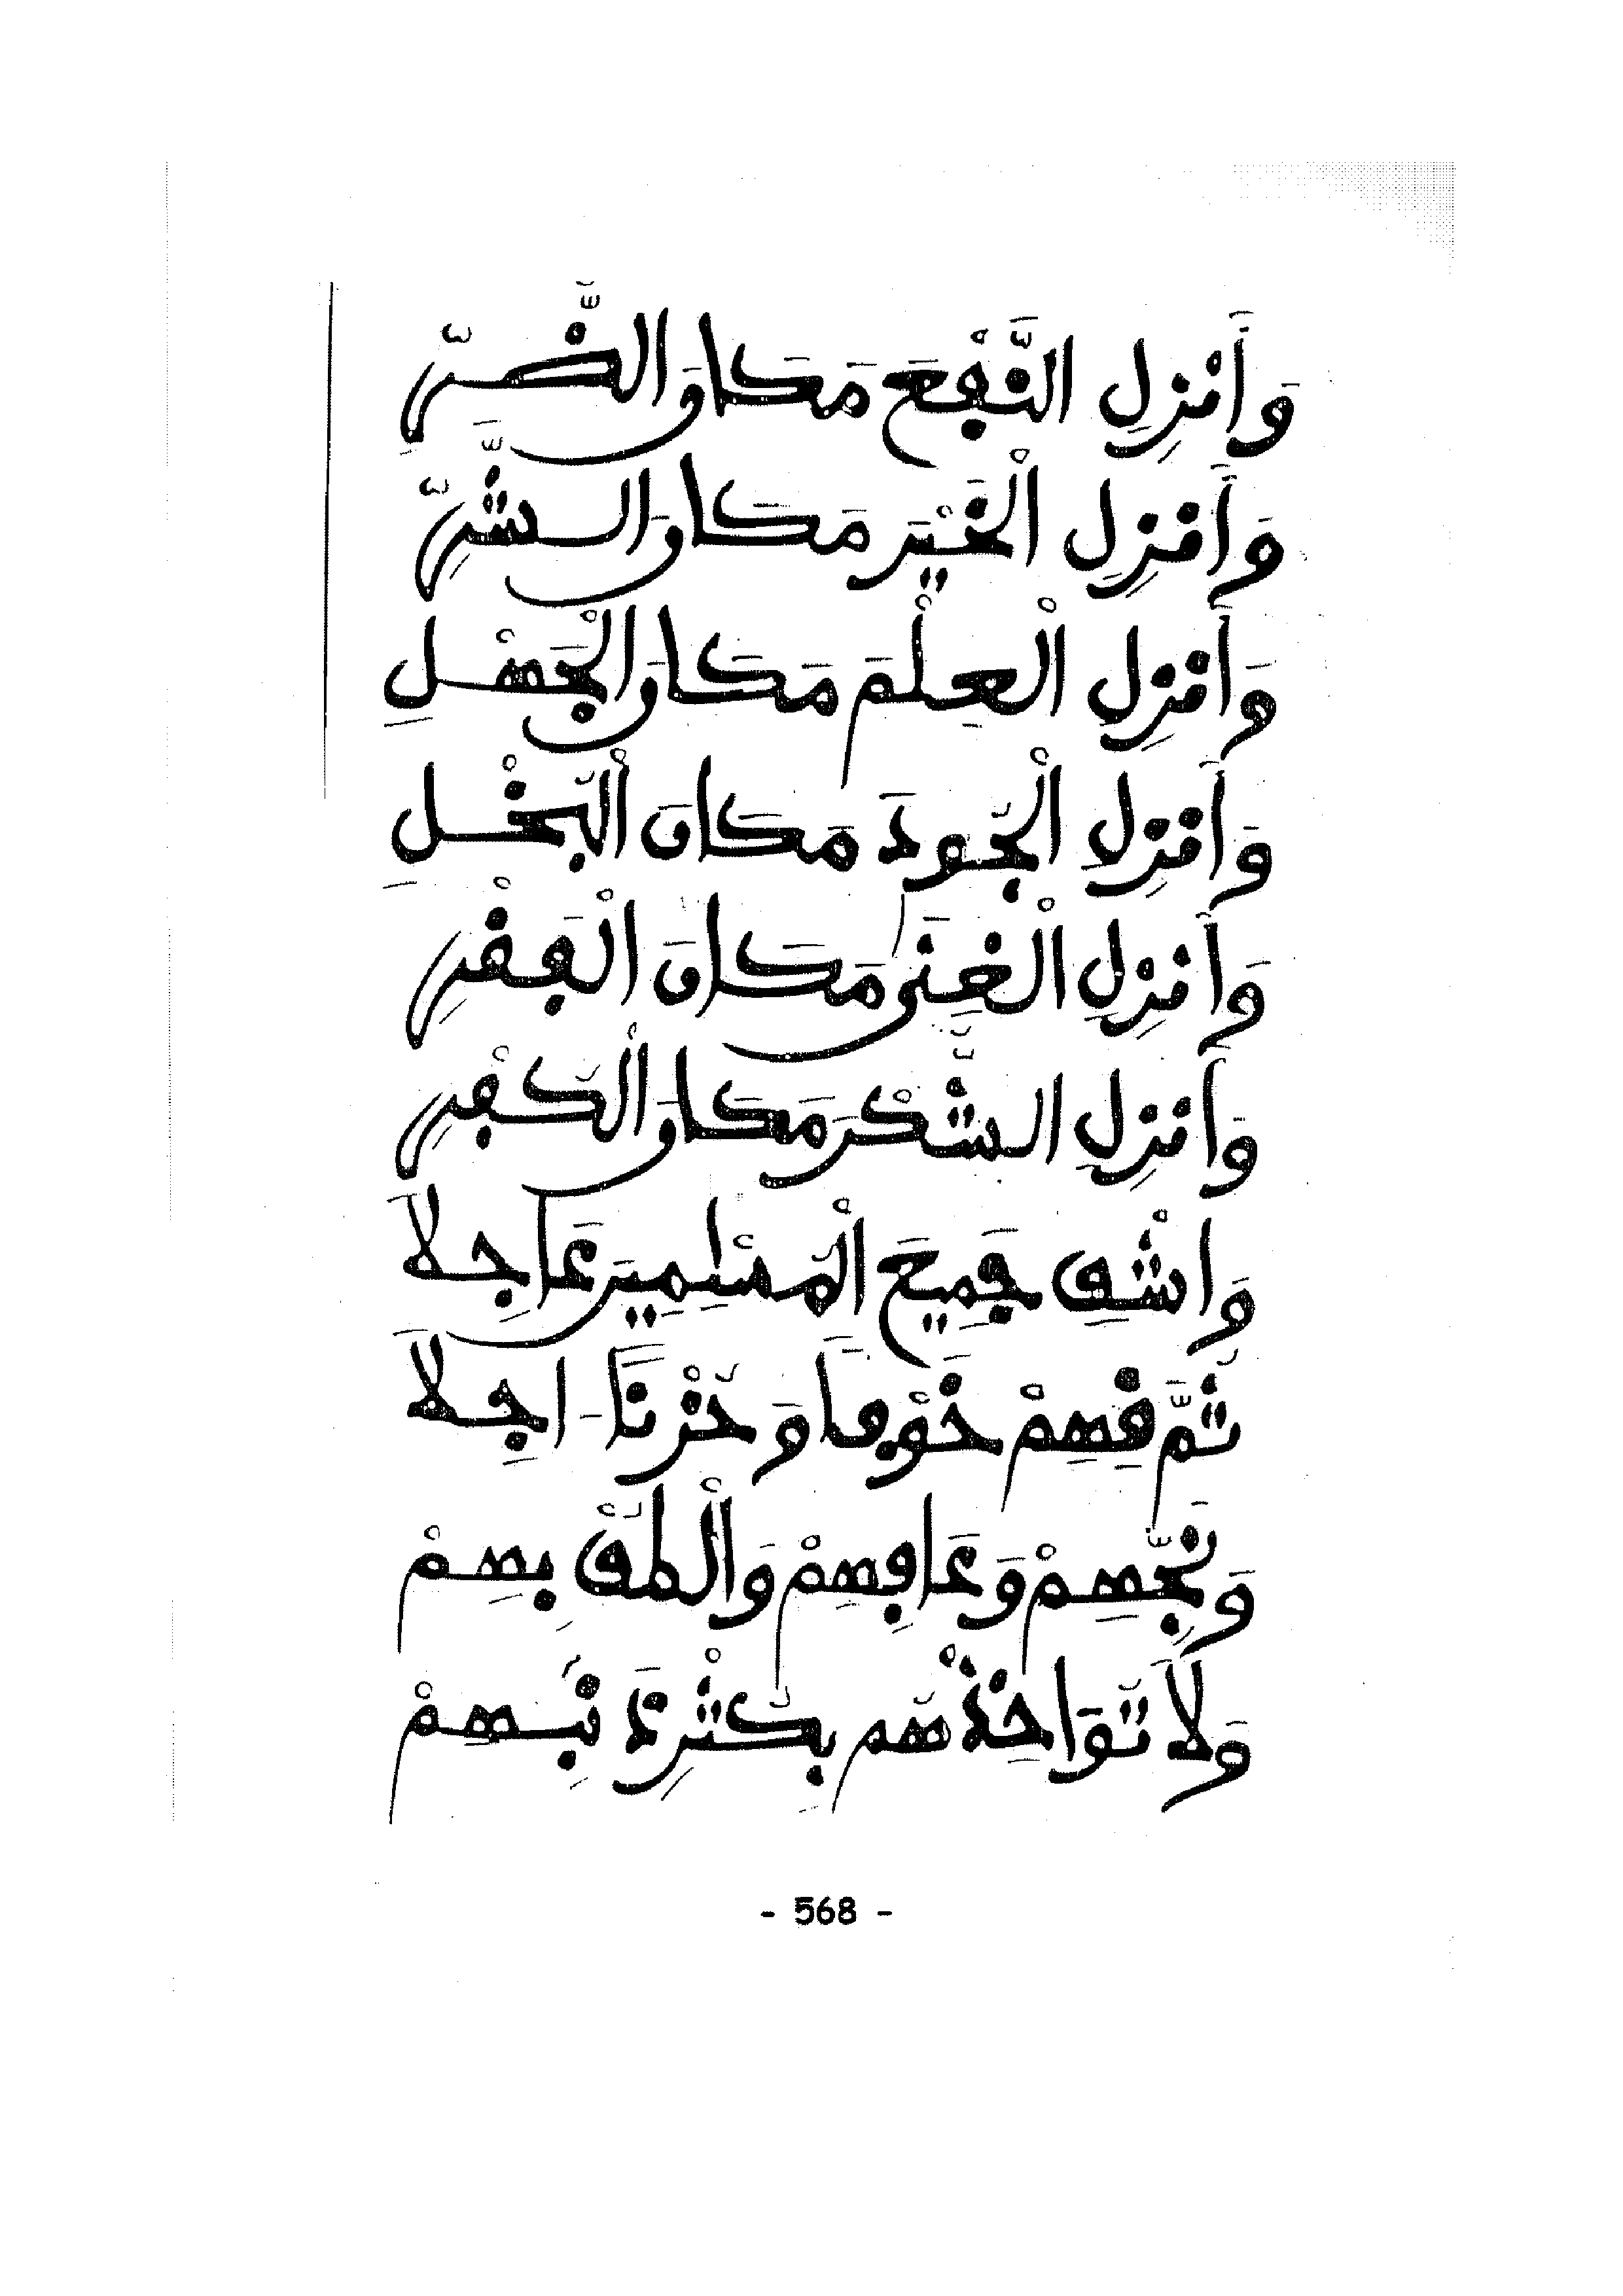 وَأَنْزِلِ النَّفْعَ مَكَانَ الضُّرِّ
وَأَنْزِلِ الْخَيْرَ مَكَانَ الشُّرِّ
وَأَنْزِلِ الْعِلْمَ مَكَانَ الْجَهْلِ
وَأَنْزِلِ الْجُودَ مَكَانَ الْبُخْلِ
وَأَنْزِلِ الْغِنَى مَكَانَ الْفَقْرِ
وَأَنْزِلِ الشُّكْرَ مَكَانَ الْكُفْرِ
وَاشْفِ جَمِيعَ الْمُسْلِمِينَ عَاجِلَا
ثُمَّ قِهِمْ خَوْفاً وَحُزْناً اجِلَا
وَنَجِّهِمْ وَعَافِهِمْ وَالْطُفْ بِهِمْ
وَلَا تُوَاخِذْهُم بِكَثْرِ ذَنْبِهِمْ
- 568 -